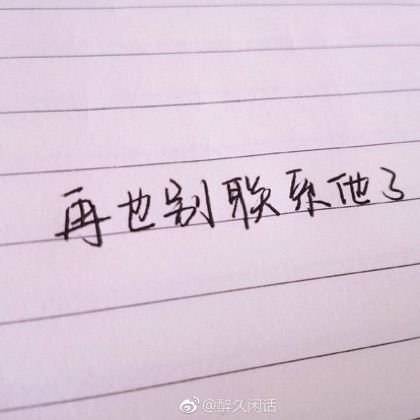 再也别联系他了
@醉久闲话